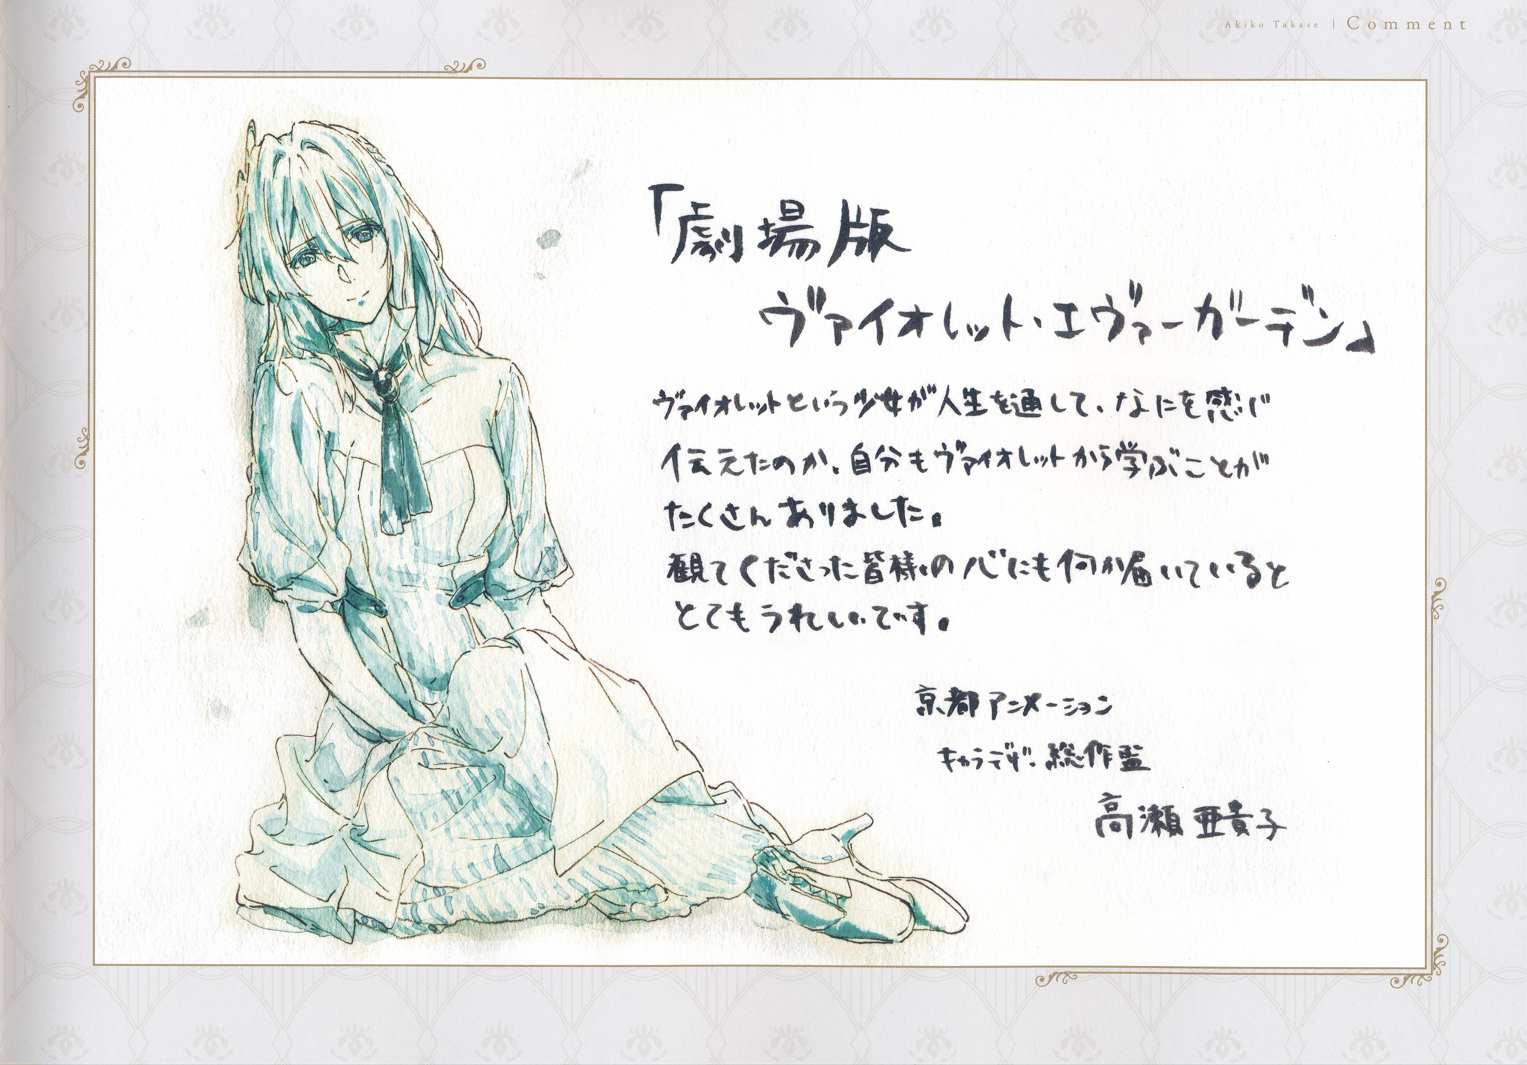 Akiko Takase | Comment
「劇場版
ヴァイオレット・エヴァーガーデン」
ヴァイオレットという少女が人生を通して、なにを感じ
伝えたのか、自分もヴァイオレットから学ぶことが
たくさんありました。
観てくださった皆様の心にも何か届いていると
とてもうれしいです。
京都アニメーション
キャラデザ・総作監
高瀬亜貴子